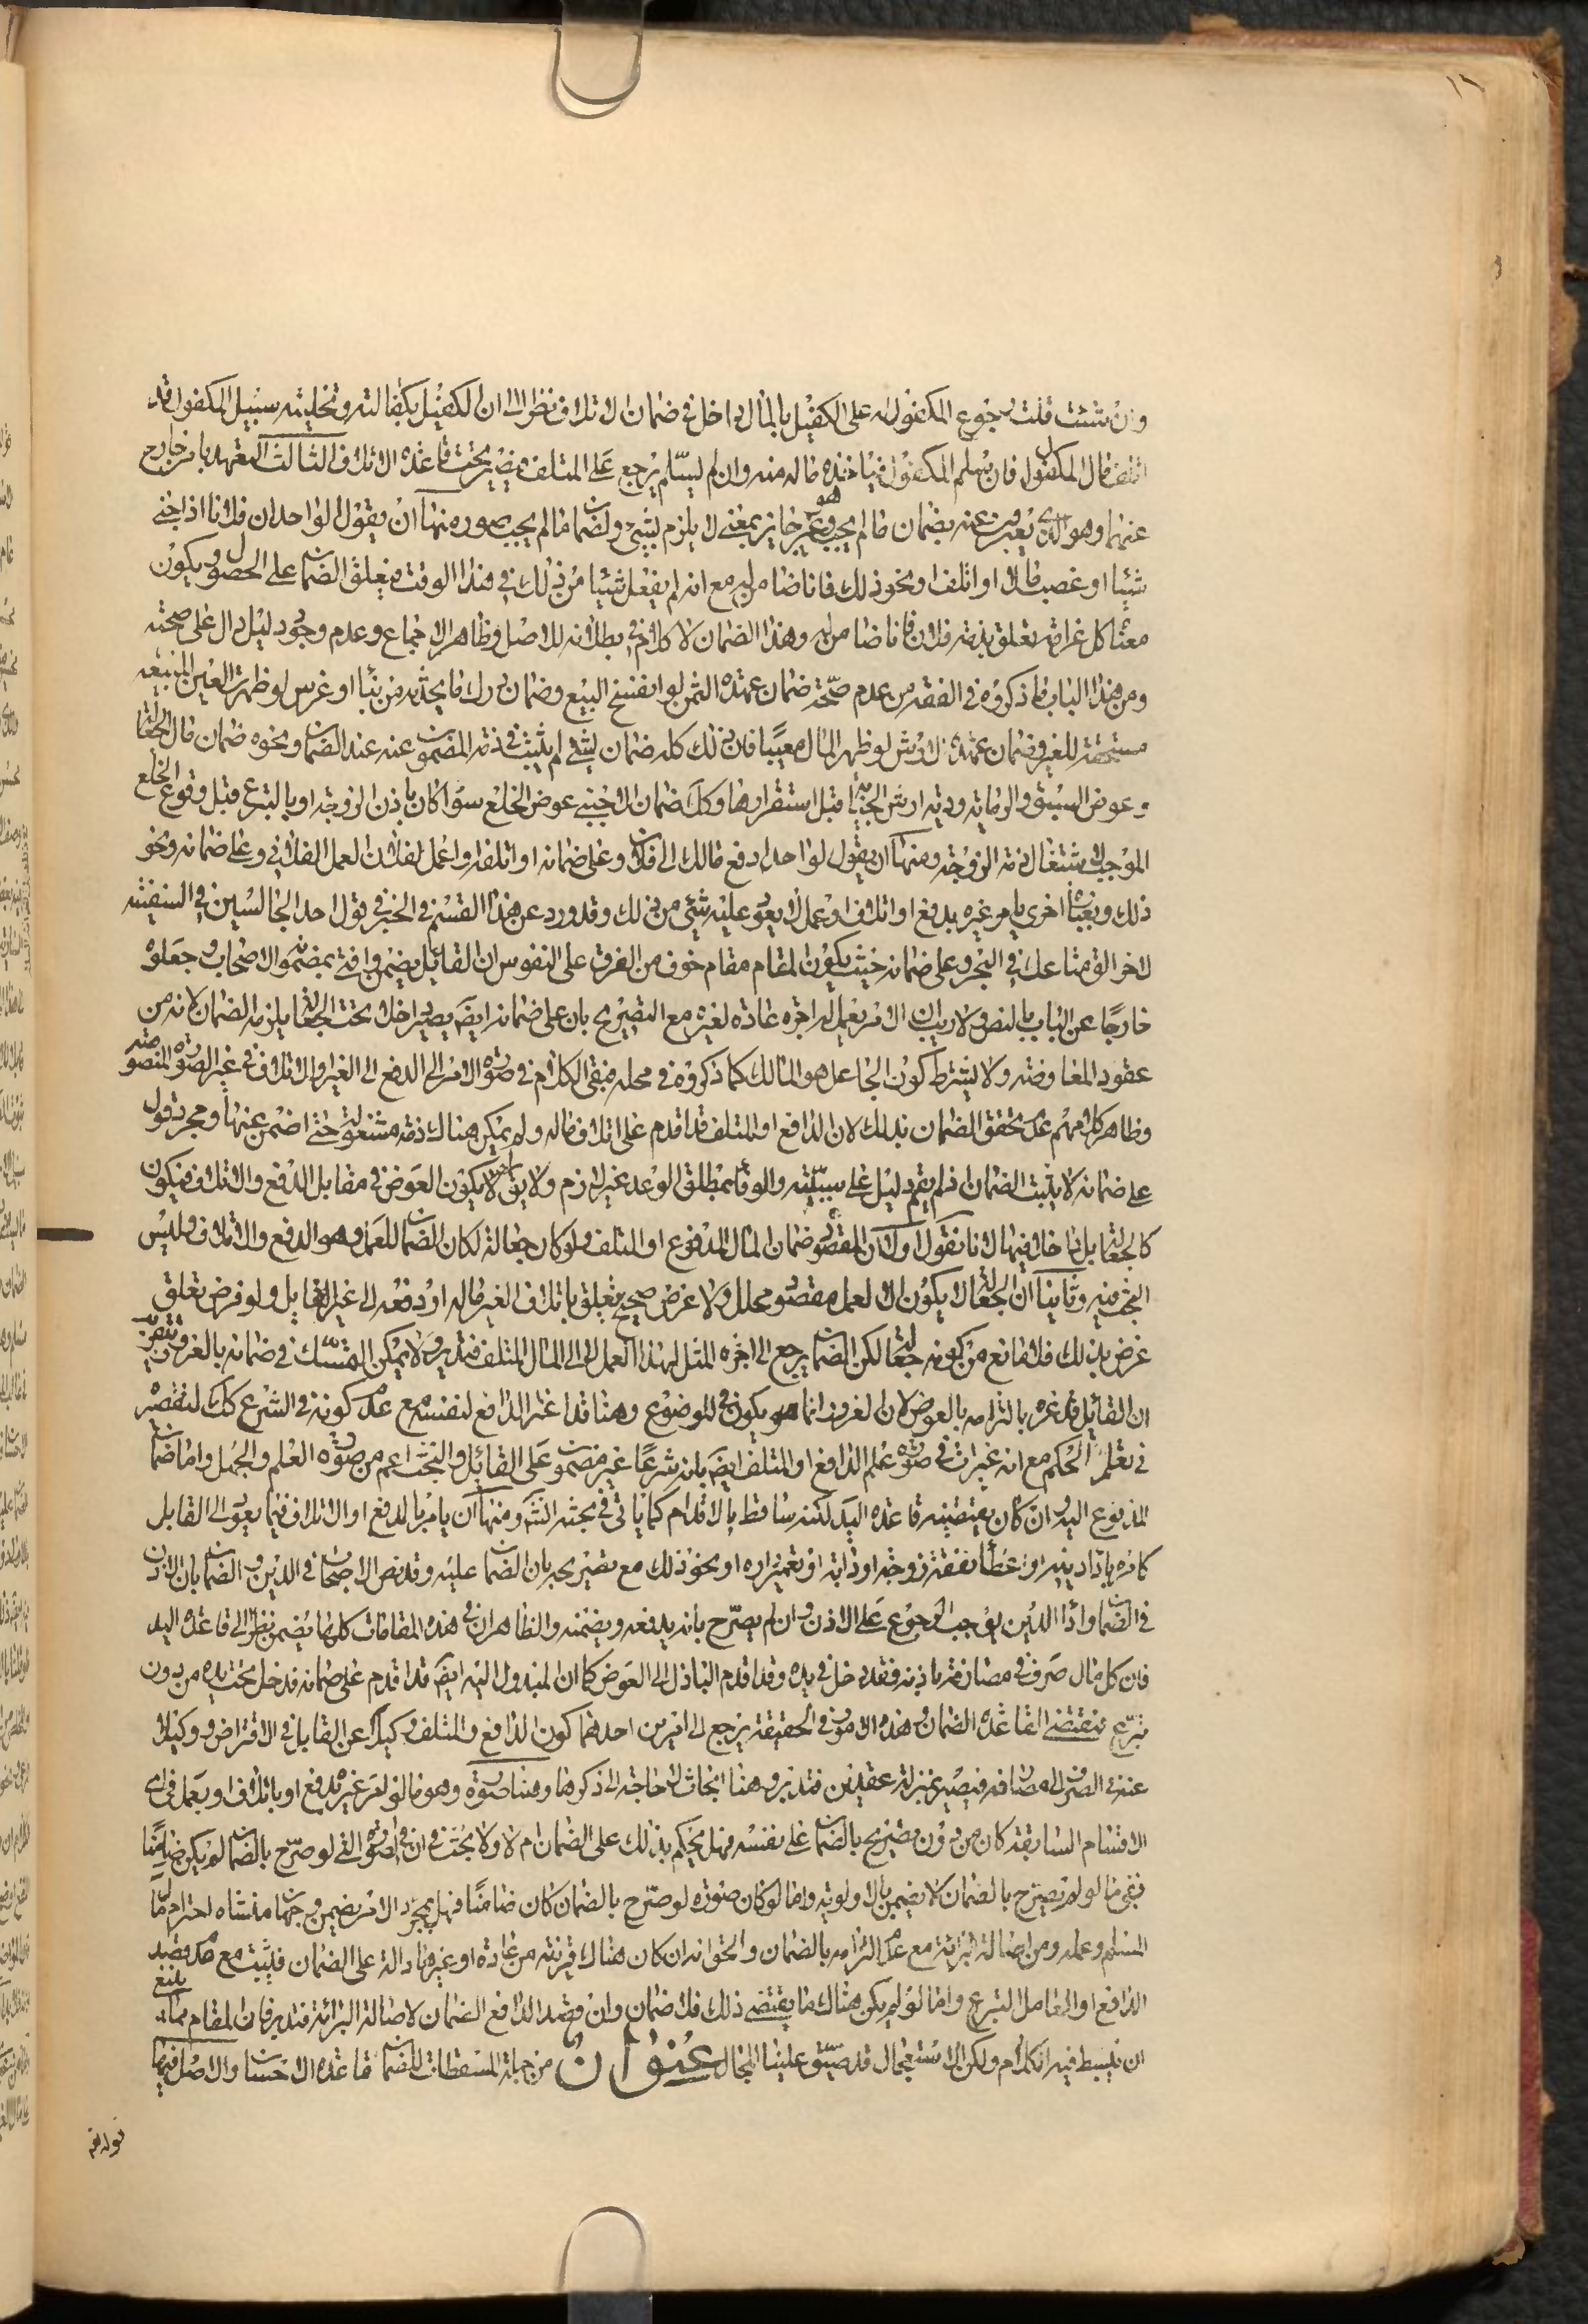 وان شئت قلت رجوع المكفول له على الكفيل بالمال داخل في ضمان الاتلاف نظرا الى ان الكفيل بكفالته وتخليته سبيل المكفول قد
اتلف مال المكفول له فان سلم المكفول فياخذه ماله منه وان لم يسلم يرجع على المتلف فيصير تحت قاعدة الاتلاف الثالث التعهد بامر خارج
عنهما وهو الذي يعبرون عنه بضمان ما لم يجب وهو غير جايز بمعنى لا يلزم بشئ ولضمان ما لم يجب صور منها ان يقول الواحد ان فلانا اذا جنى
شيئا او غصب مالا او اتلف او نحو ذلك فانا ضامن له مع انه لم يفعل شيئا من ذلك في هذا الوقت فيعلق الضمان على الحصول ويكون
معناه كل غرامة تعلق بذمة فلان فانا ضامن له وهذا الضمان لا كلام في بطلانه للاصل وظاهر الاجماع وعدم وجود دليل دال على صحته
ومن هذا الباب ما ذكروه في الفقه من عدم صحة ضمان عهدة الثمن لو انفسخ البيع وضمان درك ما يحدثه من بناء او غرس لو ظهرت العين المبيعة
مستحقة للغير وضمان عهدة الارش لو ظهر المال معيبا فان ذلك كله ضمان لشئ لم يثبت في ذمة المضمون عنه عند الضمان ونحوه ضمان مال الجعالة
وعوض السبق والرماية ودية ارش الجناية قبل استقرارها وكك ضمان الاجنبي عوض الخلع سواء كان باذن الزوجة او بالتبرع قبل وقوع الخلع
الموجب لاشتغال ذمة الزوجة ومنها ان يقول لواحد ادفع مالك الى فلان وعلى ضمانه او اتلفه او اعمل لفلان العمل الفلاني وعلى ضمانه ونحو
ذلك وبعبارة اخرى يامر غيره بدفع او اتلاف او عمل لا يعود عليه شئ من ذلك وقد ورد عن هذا القسم في الخبر في قول احد الجالسين في السفينة
لاخر الق متاعك في البحر وعلى ضمانه حيث يكون المقام مقام خوف من الغرق على النفوس ان القائل يضمن وافتى بمضمونه الاصحاب وجعلوه
خارجا عن الباب بالنص ولا ريب ان الامر بعمل له اجرة عادة لغيره مع التصريح بان على ضمانه ايضا يصير داخلا تحت الجعالة فيلزمه الضمان لانه من
عقود المعاوضة ولا يشترط كون الجاعل هو المالك كما ذكروه في محله فبقى الكلام في صورة الامر الى الدفع الى الغير او الاتلاف في غير الصورة المنصوصة
وظاهر كلامهم عدم تحقق الضمان بذلك لان الدافع او المتلف قد اقدم على اتلاف ماله ولم يكن هناك ذمة مشغولة حتى اضمن عنها ومجرد قول
على ضمانه لا يثبت الضمان اذ لم يقم دليل على سببيته والوفاء بمطلق الوعد غير لازم ولا يق لم لا يكون العوض في مقابل الدفع والاتلاف فيكون
كالجعالة بل داخلا فيها لانا نقول اولا ان المقصود ضمان المال المدفوع او المتلف ولو كان جعالة لكان الضمان للعمل وهو الدفع والاتلاف وليس
البحث فيه وثانيا ان الجعالة لا يكون الا لعمل مقصود محلل ولا غرض صحيح يتعلق باتلاف الغير ماله او دفعه الى غير القايل ولو فرض تعلق
غرض بذلك فلا مانع من كونه جعالة لكن الضمان يرجع الى اجرة المثل لهذا العمل لا الى المال المتلف فتدبر ولا يمكن التمسك في ضمانه بالغرور بتقرير
ان القائل قد غره بالتزامه بالعوض لان الغرور انما هو يكون في الموضوع وهنا قد اغتر الدافع لنفسه مع عدم كونه في الشرع كك لتقصيره
في تعلم الحكم مع انه غير ات في صورة علم الدافع او المتلف ايضا بانه شرعا غير مضمون على القائل والبحث اعم من صورة العلم والجهل واما ضمان
المدفوع اليه وان كان يقتضيه قاعدة اليد لكنه ساقط بالاقدام كما ياتي في بحثه انشاء الله ومنها ان يامر بالدفع او الاتلاف فيما يعود الى القابل
كامره باداء دينه او اعطاء نفقة زوجته او دابته او تعمير داره او نحو ذلك مع تصريحه بان الضمان عليه وقد نص الاصحاب في الدين وفي الضمان بان الاذن
في الضمان واداء الدين يوجب الرجوع على الاذن وان لم يصرح بانه يدفعه ويضمنه والظاهر ان في هذه المقامات كلها يضمن نظرا الى قاعدة اليد
فان كل مال صرف في مصارفه باذنه فقد دخل في يده وقد اقدم الباذل الى العوض كما ان المبذول اليه ايضا قد اقدم على ضمانه فدخل تحت يده من دون
تبرع فمقتضى القاعدة الضمان وهذه الامور في الحقيقة يرجع الى امرين احدهما كون الدافع والمتلف وكيلا عن القابل في الاقتراض ووكيلا
عنه في الصرف الى مصارفه فيصير بمنزلة عقدين فتدبر وهنا ابحاث لا حاجة الى ذكرها وهنا صورة وهو ما لو امر غيره بدفع او باتلاف او بعمل في اي
الاقسام السابقة كان من دون تصريح بالضمان على نفسه فهل يحكم بذلك على الضمان ام لا ولا بحث في ان في الصورة التي لو صرح بالضمان لم يكن ضامنا
ففي ما لو لم يصرح بالضمان لا يضمن بالاولوية واما لو كان صورة لو صرح بالضمان كان ضامنا فهل بمجرد الامر يضمن وجهان منشاه احترام مال
المسلم وعمله ومن اصالة البرائة مع عدم التزامه بالضمان والحق انه ان كان هناك قرينة من عادة او غيرها دالة على الضمان فليثبت مع عدم قصد
الدافع او العامل التبرع واما لو لم يكن هناك ما يقتضى ذلك فلا ضمان وان قصد الدافع الضمان لاصالة البرائة فتدبر فان المقام مما ينبغي
ان يبسط فيه الكلام ولكن الاستعجال قد ضيق علينا المجال عنوان من جملة المسقطات للضمان قاعدة الاحسان والاصل فيها
قوله تعه